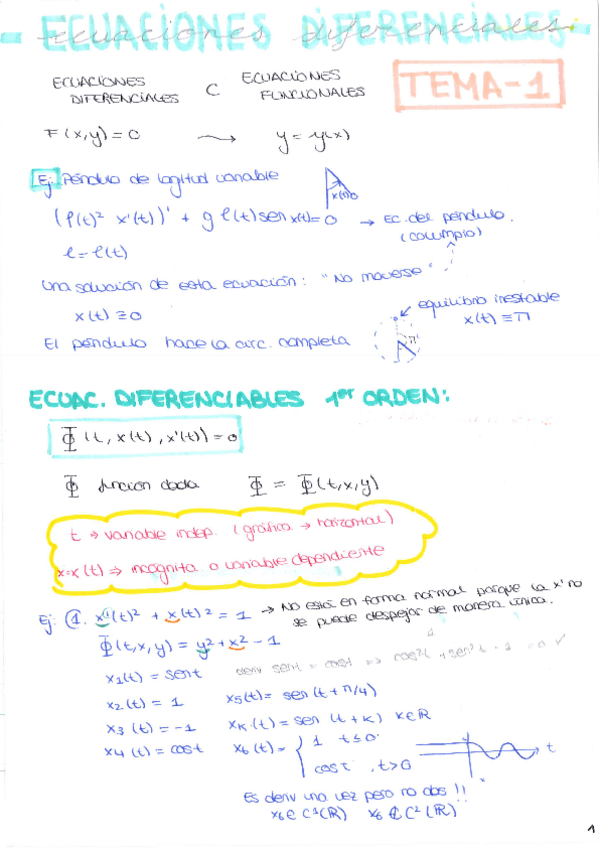 ECUACIONES DIFERENCIALES
ECUACIONES DIFERENCIALES ⊂ ECUACIONES FUNCIONALES
TEMA-1
F(x,y)=0 ⟿ y=y(x)
Ej: Péndulo de logitud variable
x(t)
(ℓ(t)² x'(t))' + g ℓ(t) sen x(t) = 0 → Ec. del péndulo.
(columpio)
ℓ=ℓ(t)
Una solución de esta ecuación: "No moverse"
x(t) ≡ 0
equilibrio inestable
x(t) ≡ π
El péndulo hace la circ. completa
π
ECUAC. DIFERENCIABLES 1er ORDEN:
Φ(t, x(t), x'(t)) = 0
Φ función dada Φ = Φ(t,x,y)
t → variable indep. (gráfica → horizontal)
x=x(t) ⇒ incógnita o variable dependiente
Ej: 1. x'(t)² + x(t)² = 1 → No está en forma normal porque la x' no
se puede despejar de manera única.
Φ(t,x,y) = y² + x² - 1
x₁(t) = sent deriv sent = cost ⇒ cos²t + sen²t - 1 = 0 ✓
x₂(t) = 1 x₅(t) = sen(t + π/4)
x₃(t) = -1 xₖ(t) = sen(t + k) k∈ℝ
x₄(t) = cost x₆(t) = { 1 t ≤ 0
cost, t > 0
t
Es deriv una vez pero no dos!!
x₆ ∈ C¹(ℝ) x₆ ∉ C²(ℝ)
1